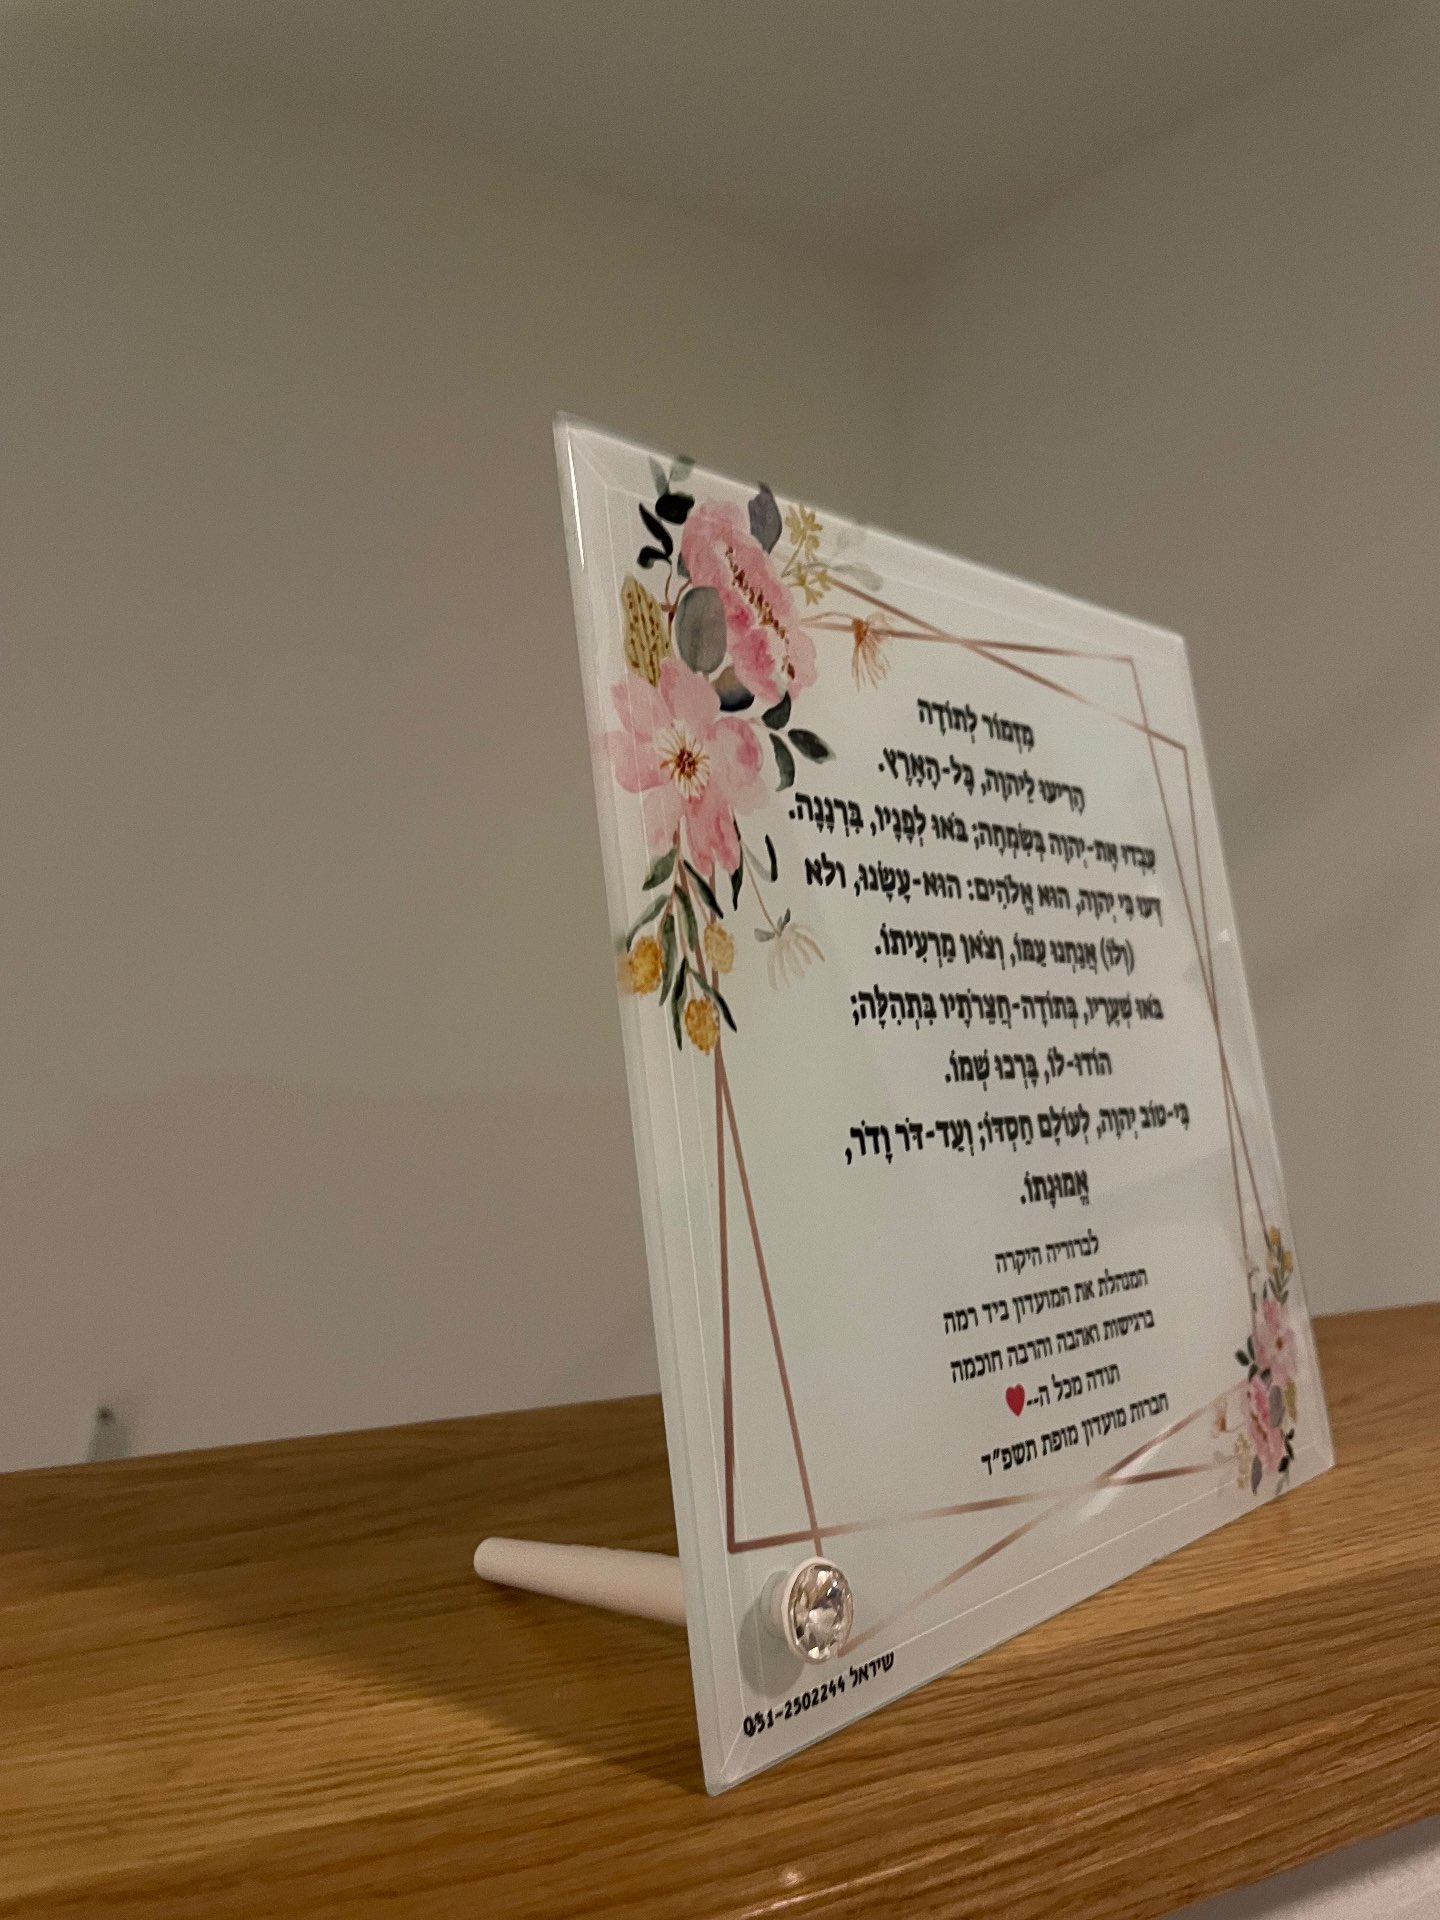 מִזְמוֹר לְתוֹדָה
הָרִיעוּ לַיהוָה, כָּל-הָאָרֶץ.
עִבְדוּ אֶת-יְהוָה בְּשִׂמְחָה; בֹּאוּ לְפָנָיו, בִּרְנָנָה.
דְּעוּ כִּי יְהוָה, הוּא אֱלֹהִים: הוּא-עָשָׂנוּ, ולא
(וְלוֹ) אֲנַחְנוּ עַמּוֹ, וְצֹאן מַרְעִיתוֹ.
בֹּאוּ שְׁעָרָיו, בְּתוֹדָה-חֲצֵרֹתָיו בִּתְהִלָּה;
הוֹדוּ-לוֹ, בָּרְכוּ שְׁמוֹ.
כִּי-טוֹב יְהוָה, לְעוֹלָם חַסְדּוֹ; וְעַד-דֹּר וָדֹר,
אֱמוּנָתוֹ.
לברוריה היקרה
המנהלת את המועדון ביד רמה
ברגישות ואהבה והרבה חוכמה
תודה מכל ה--❤️
חברות מועדון מופת תשפ"ד
שיראל 051-2502244